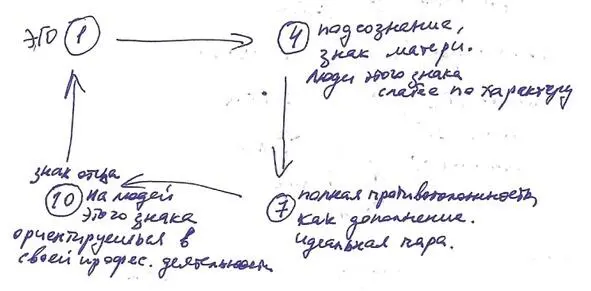 ЭГО 1
4 подсознание,
знак матери.
Люди этого знака
слабее по характеру
7 полная противоположность,
как дополнение.
идеальная пара.
знак отца
10 На людей
этого знака
ориентируешься в
своей професс. деятельности